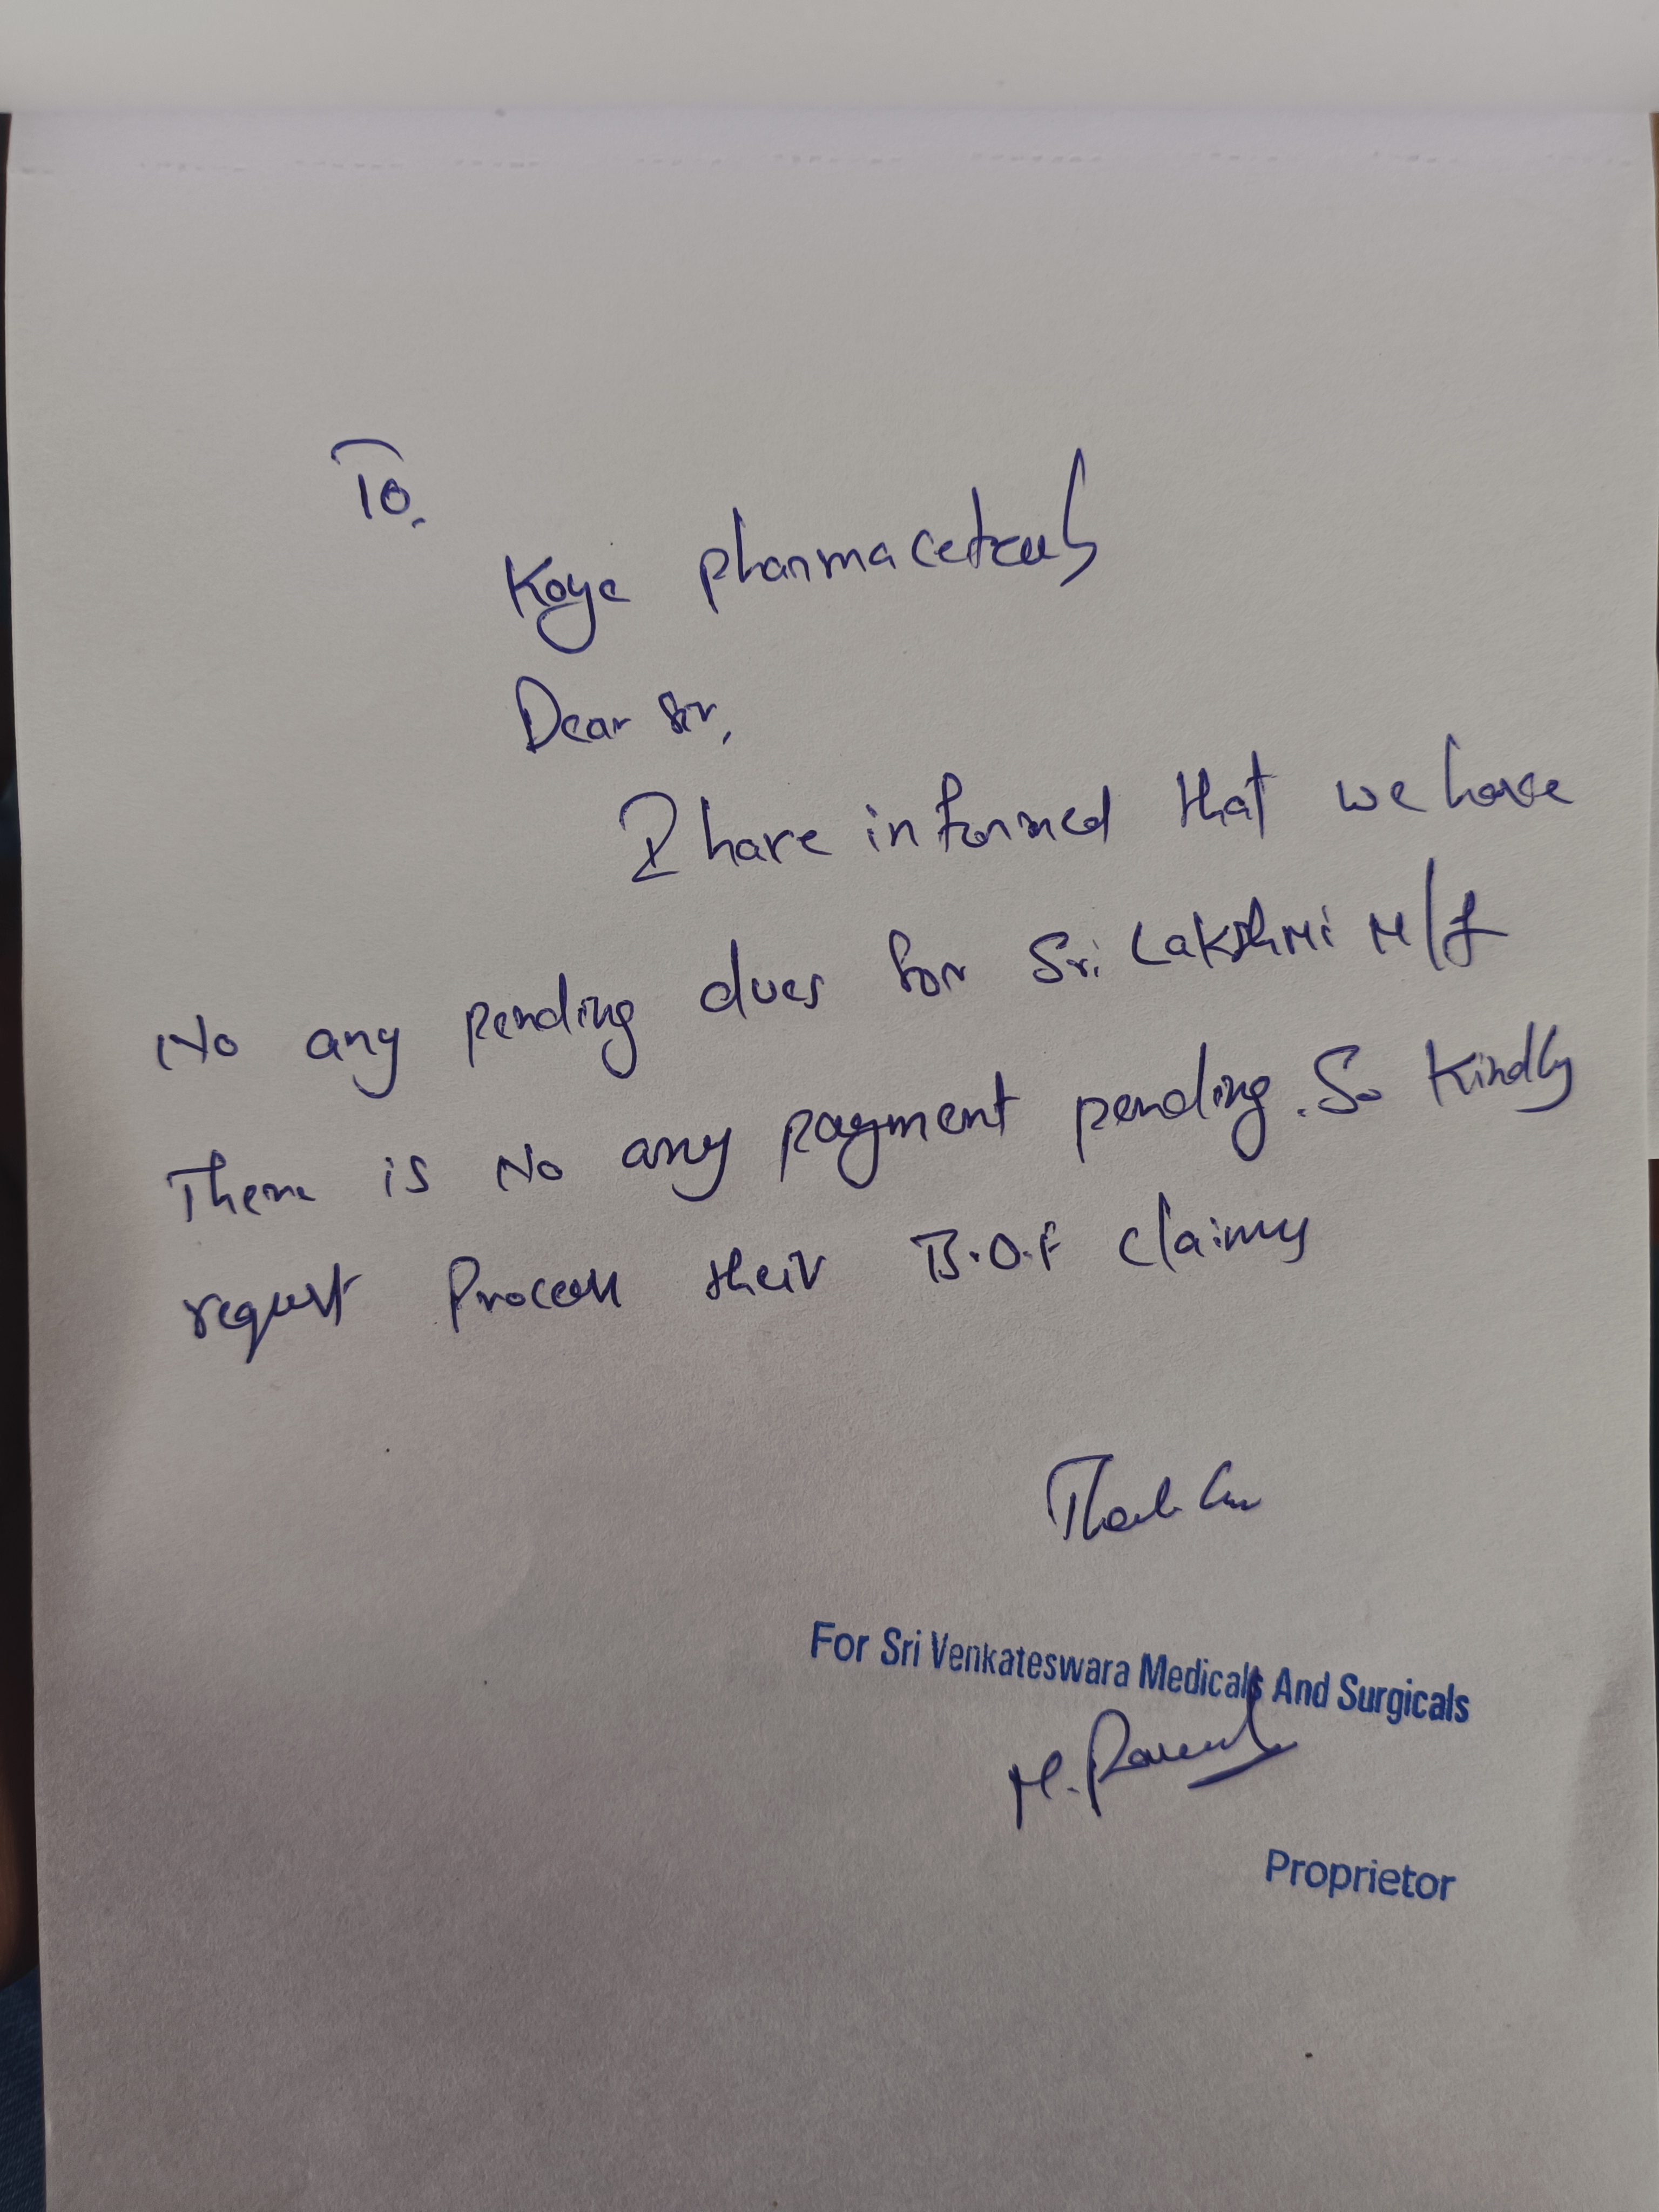 To,
Koye pharmaceticals
Dear Sir,
I have informed that we have
No any pending dues for Sri Lakshmi M/s
There is No any payment pending. So Kindly
request Process their B.O.F claims
Thank
For Sri Venkateswara Medicals And Surgicals
M.
Proprietor